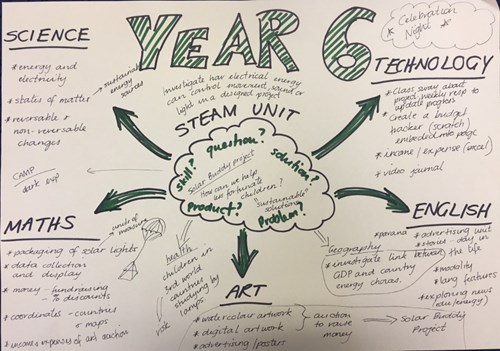 YEAR 6
Celebration
Night
Investigate how electrical energy
can control movement, sound or
light in a designed project
STEAM UNIT
SCIENCE
* energy and
electricity
sustainable
energy
sources
* states of matter
* reversable +
non-reversable
changes
CAMP
dark exp
TECHNOLOGY
* Class survey about
project, weekly resp to
update progress
* Create a budget
tracker (scratch)
embedded into page
* income / expense (excel)
* video journal
question?
skill?
solution?
Solar Buddy project
How can we help
less fortunate
children?
"sustainable"
solution
product?
problem?
MATHS
units of
measure
* packaging of solar lights
* data collection
and display
* money - fundraising
- % discounts
* coordinates - countries
+ maps
* income & expenses of art auction
health
children in
3rd world
countries
studying by
lamps
risk
ART
* watercolour artwork
* digital artwork
* advertising / posters
auction
to raise
money
Geography
* investigate link between
GDP and country
energy choices.
ENGLISH
* advertising unit
* stories - day in
the life
* modality
* lang features
* exploring news
(edu/energy)
Solar Buddy
Project